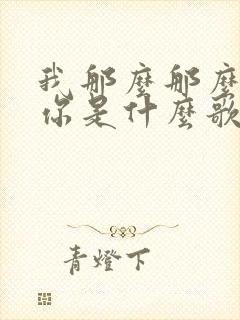 我那麼那麼
你是什麼歌
青燈下